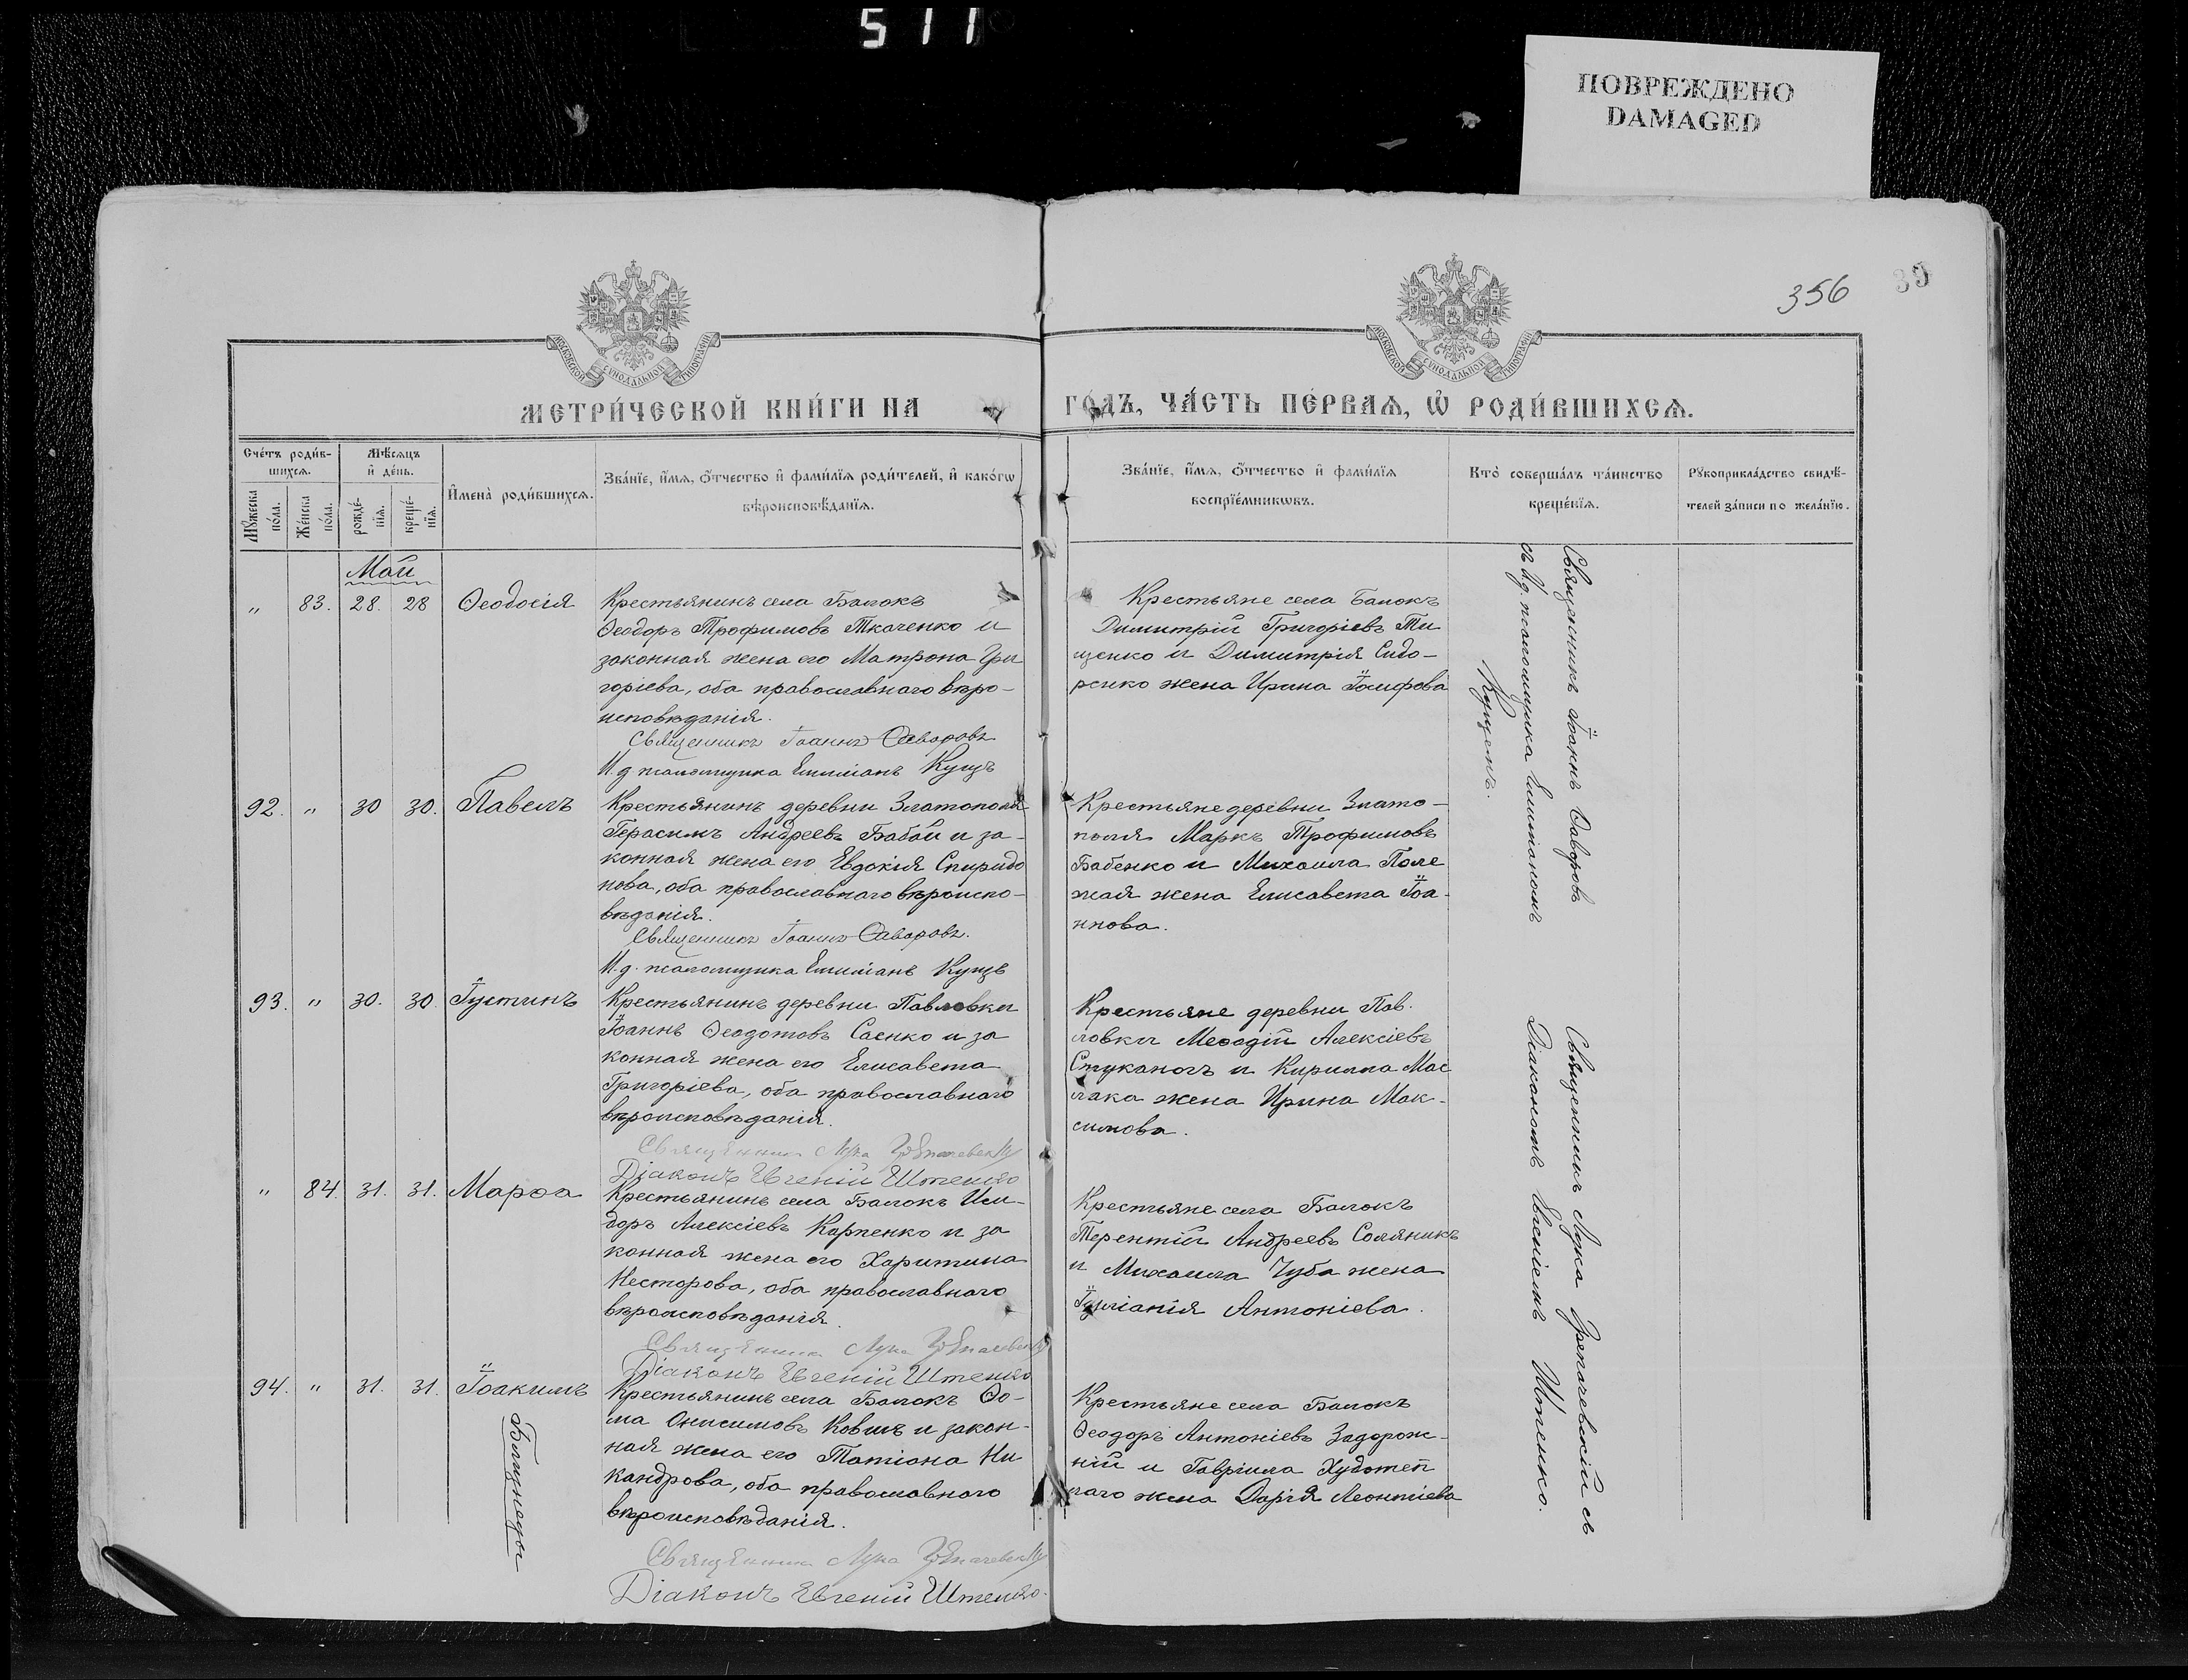 511
ПОВРЕЖДЕНО
DAMAGED
356
39
МОСКОВСКОЙ СѴНОДАЛЬНОЙ ТИПОГРАФІИ
МОСКОВСКОЙ СѴНОДАЛЬНОЙ ТИПОГРАФІИ
МЕТРИ́ЧЕСКОЙ КНИ́ГИ НА
ГО́ДЪ, ЧА́СТЬ ПЕ́РВАѦ, Ѽ РОДИ́ВШИХСѦ.
Сче́тъ роди́в-
шихсѧ.
Мѣ́сѧцъ
и҆ де́нь.
Мꙋ́жеска
по́ла.
Же́нска
по́ла.
рожде́-
нїѧ.
креще́-
нїѧ.
И҆мена̀ роди́вшихсѧ.
Зва́нїе, и҆́мѧ, ѻ҆́тчество и҆ фами́лїѧ роди́телей, и҆ како́гѡ
вѣроисповѣ́данїѧ.
Зва́нїе, и҆́мѧ, ѻ҆́тчество и҆ фами́лїѧ
воспрїе́мникѡвъ.
Кто̀ соверша́лъ та́инство
креще́нїѧ.
Рꙋкоприкла́дство свидѣ́-
телей за́писи по жела́нїю.
Май
" 83. 28. 28 Ѳеодосія
Крестьянинъ села Балокъ
Ѳеодоръ Трофимовъ Ткаченко и
законная жена его Матрона Гри
горіева, оба православнаго вѣро-
исповѣданія.
Священникъ Іоаннъ Саваровъ
И.д. псаломщика Емиліанъ Кущъ
Крестьяне села Балокъ
Димитрій Григоріевъ Ти
щенко и Димитрія Сидо-
ренко жена Ирина Іосифова
Священникъ Іоаннъ Саваровъ
съ И.д. псаломщика Емиліаномъ
Кущемъ.
92. " 30 30. Павелъ
Крестьянинъ деревни Златополя
Герасимъ Андреевъ Бабай и за-
конная жена его Евдокія Спиридо
нова, оба православнаго вѣроиспо-
вѣданія.
Священникъ Іоаннъ Саваровъ.
И.д. псаломщика Емиліанъ Кущъ
Крестьяне деревни Злато-
поля Маркъ Трофимовъ
Бабенко и Михаила Поле
жая жена Елисавета Іоа-
ннова.
93. " 30. 30. Іустинъ
Крестьянинъ деревни Павловки
Іоаннъ Ѳеодотовъ Саенко и за
конная жена его Елисавета
Григоріева, оба православнаго
вѣроисповѣданія.
Священникъ Лука
Діаконъ Евгеній Штепко
Крестьяне деревни Пав-
ловки Меѳодій Алексіевъ
Стуканогъ и Кирилла Мас
лака жена Ирина Мак-
симова.
Священникъ Лука съ
Діакономъ Евгеніемъ Штепко.
" 84. 31. 31. Марѳа
Крестьянинъ села Балокъ Иси-
доръ Алексіевъ Карпенко и за
конная жена его Харитина
Несторова, оба православнаго
вѣроисповѣданія.
Священникъ Лука
Діаконъ Евгеній Штепко
Крестьяне села Балокъ
Терентій Андреевъ Соляникъ
и Михаила Чуба жена
Іуліанія Антоніева.
94. " 31. 31. Іоакимъ
Близнецы
Крестьянинъ села Балокъ Ѳо-
ма Онисимовъ Ковшъ и закон-
ная жена его Татіана Ни
кандрова, оба православнаго
вѣроисповѣданія.
Священникъ Лука
Діаконъ Евгеній Штепко.
Крестьяне села Балокъ
Ѳеодоръ Антоніевъ Задорож-
ній и Гавріила Худотеп
лаго жена Дарія Леонтіева